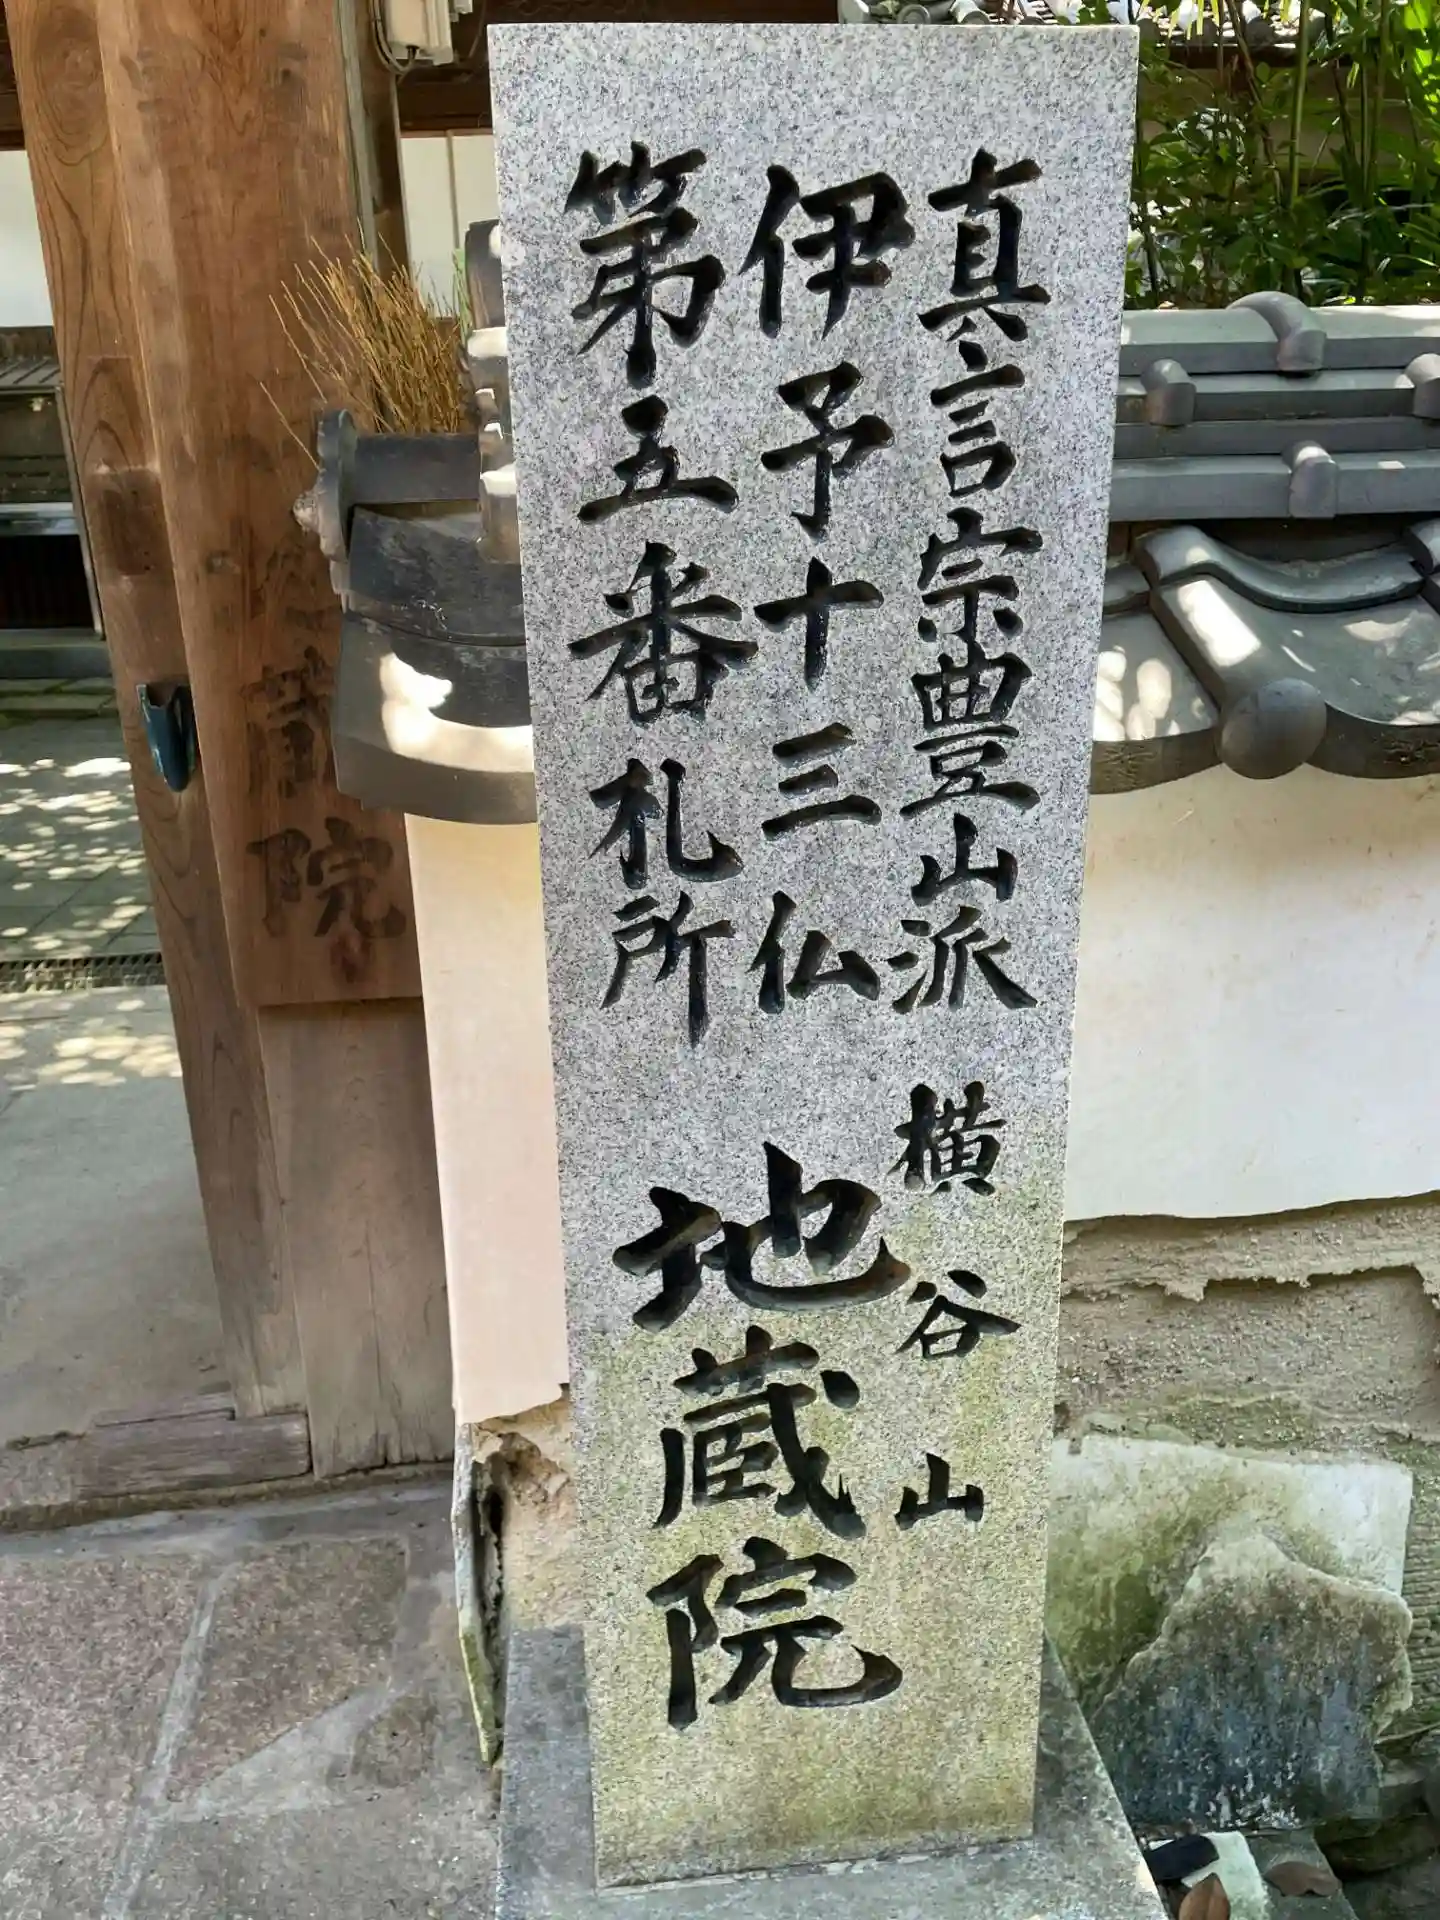 真言宗豊山派
伊予十三仏
第五番札所
横谷山
地蔵院
蔵院